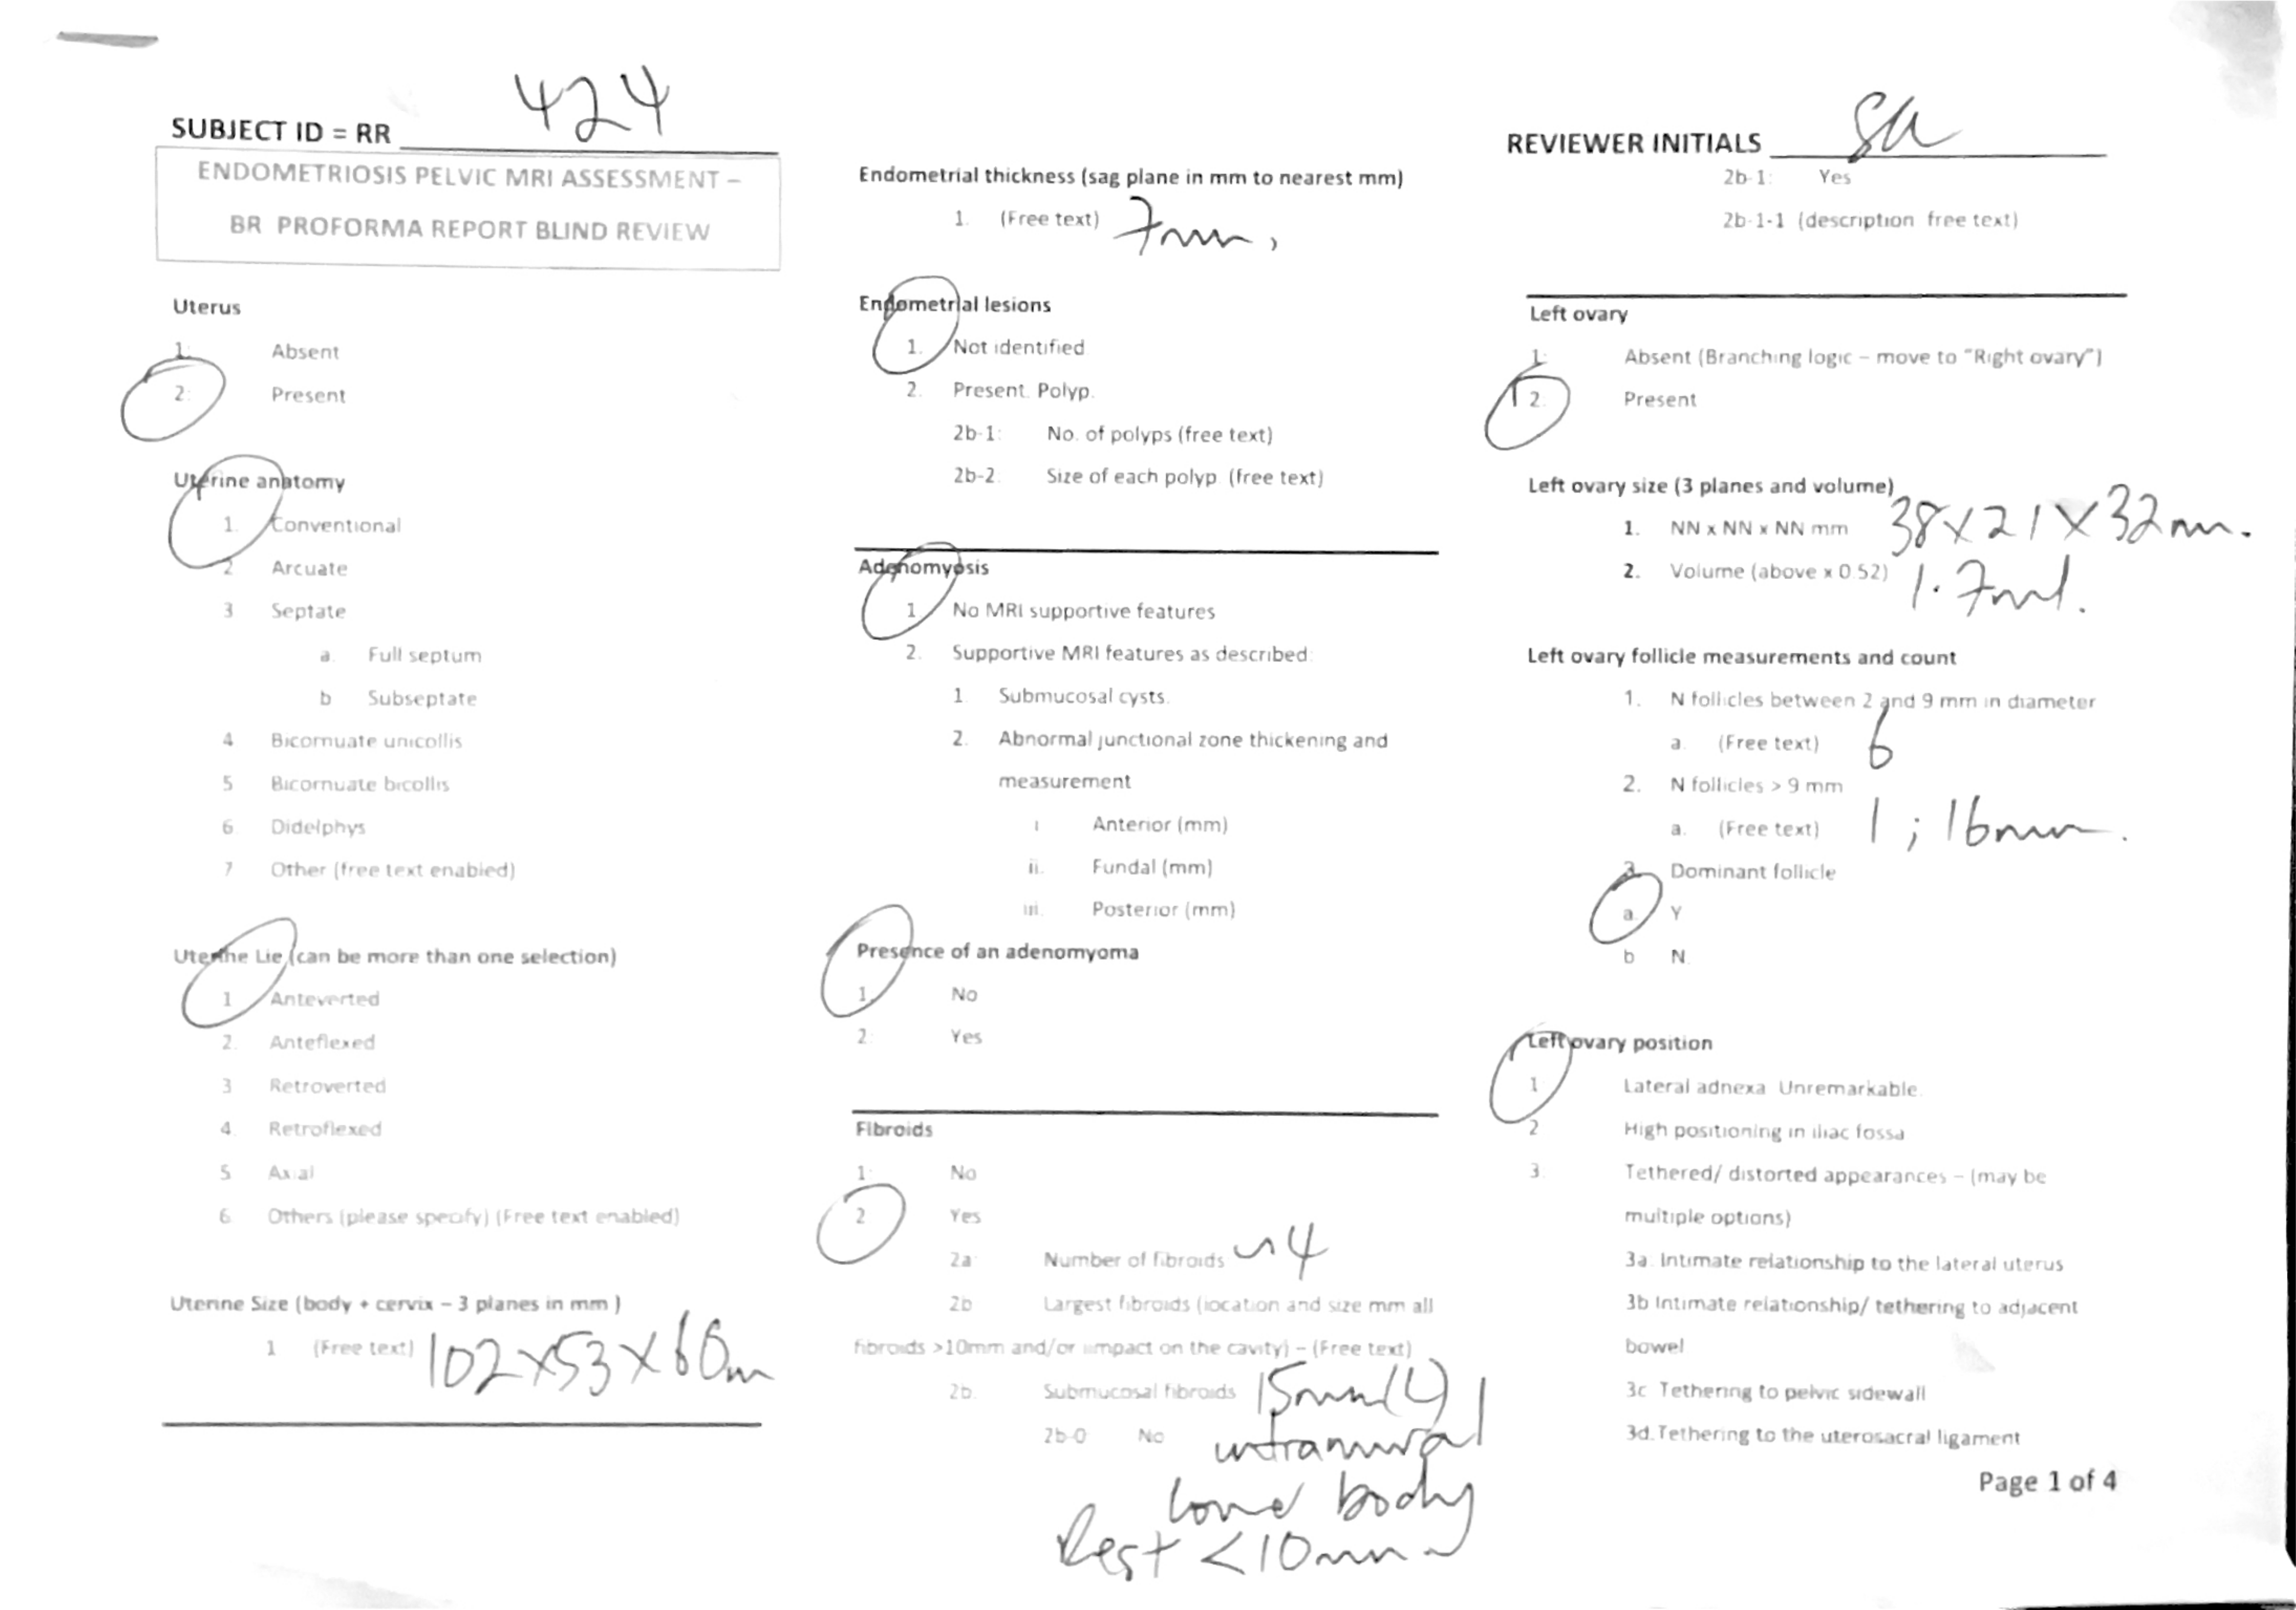 SUBJECT ID = RR 424
ENDOMETRIOSIS PELVIC MRI ASSESSMENT –
BR PROFORMA REPORT BLIND REVIEW
Uterus
1: Absent
2: Present
Uterine anatomy
1. Conventional
2 Arcuate
3 Septate
a. Full septum
b Subseptate
4 Bicornuate unicollis
5 Bicornuate bicollis
6 Didelphys
7 Other (free text enabled)
Uterine Lie (can be more than one selection)
1 Anteverted
2. Anteflexed
3 Retroverted
4. Retroflexed
5 Axial
6 Others (please specify) (Free text enabled)
Uterine Size (body + cervix – 3 planes in mm )
1 (Free text) 102x53x60m
Endometrial thickness (sag plane in mm to nearest mm)
1. (Free text) 7mm,
Endometrial lesions
1. Not identified
2. Present. Polyp.
2b-1: No. of polyps (free text)
2b-2. Size of each polyp (free text)
Adenomyosis
1 No MRI supportive features
2. Supportive MRI features as described:
1. Submucosal cysts.
2. Abnormal junctional zone thickening and
measurement
i Anterior (mm)
ii. Fundal (mm)
iii. Posterior (mm)
Presence of an adenomyoma
1. No
2: Yes
Fibroids
1: No
2 Yes
2a: Number of fibroids ~4
2b Largest fibroids (location and size mm all
fibroids >10mm and/or impact on the cavity) – (Free text)
2b. Submucosal fibroids 15mm (L)
2b-0 No intramural
lower body
Rest <10mm
REVIEWER INITIALS
2b-1: Yes
2b-1-1 (description free text)
Left ovary
1: Absent (Branching logic – move to "Right ovary")
2. Present
Left ovary size (3 planes and volume)
1. NN x NN x NN mm 38x21x32mm.
2. Volume (above x 0.52) 1.7ml.
Left ovary follicle measurements and count
1. N follicles between 2 and 9 mm in diameter
a. (Free text) 6
2. N follicles > 9 mm
a. (Free text) 1 ; 16mm.
3. Dominant follicle
a. Y
b N.
Left ovary position
1 Lateral adnexa Unremarkable.
2 High positioning in iliac fossa
3. Tethered/ distorted appearances – (may be
multiple options)
3a. Intimate relationship to the lateral uterus
3b Intimate relationship/ tethering to adjacent
bowel
3c Tethering to pelvic sidewall
3d.Tethering to the uterosacral ligament
Page 1 of 4